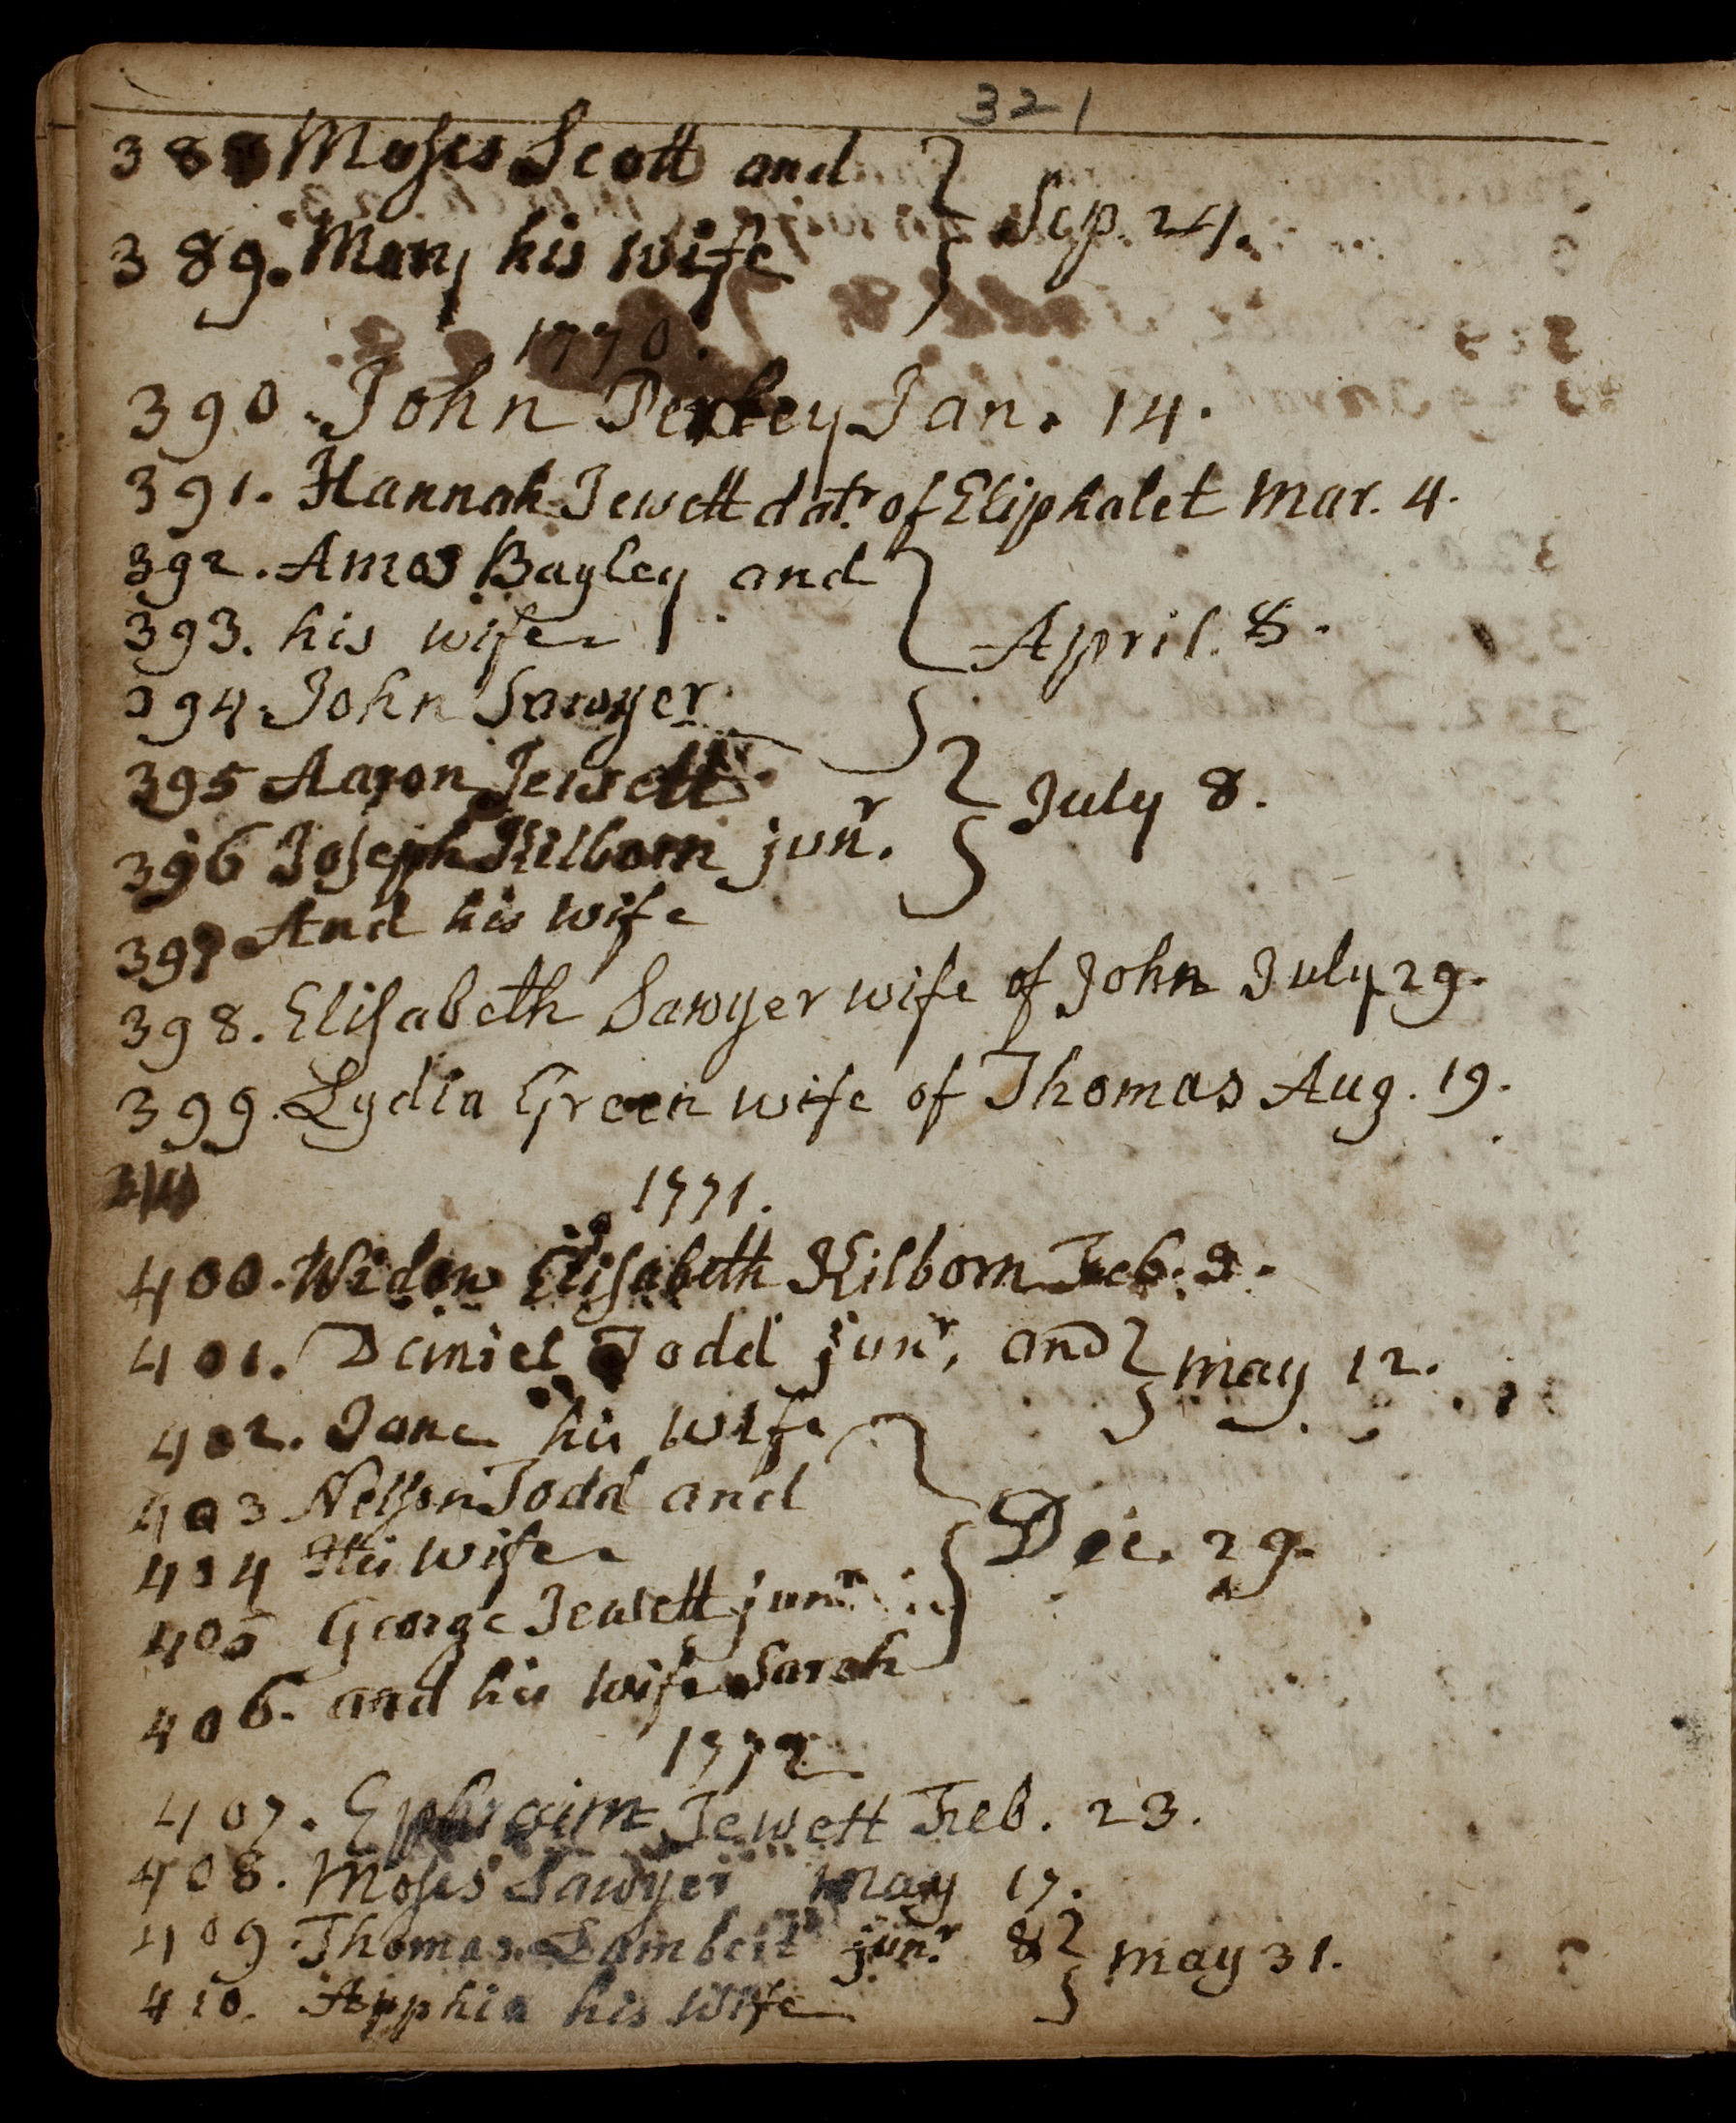 321
388 Moses Scott and
389. Mary his wife } Sep. 24.
1770.
390. John Perley Jan. 14.
391. Hannah Jewett datr. of Eliphalet Mar. 4.
392. Amos Bayley and
393. his wife } April. 8.
394 John Sawyer
395 Aaron Jewett
396 Joseph Kilborn junr. } July 8.
397 And his wife
398. Elisabeth Sawyer wife of John July 29.
399. Lydia Green wife of Thomas Aug. 19.
1771.
400. Widow Elisabeth Kilborn Feb.
401. Daniel Todd junr, and } May 12.
402. Jane his wife
403 Nelson Todd and
404 His wife } Dec. 29.
405 George Jewett junr.
406. and his wife Sarah
1772
407. Ephraim Jewett Feb. 23.
408. Moses Sawyer May 17.
409 Thomas Lambert junr. & } May 31.
410. Apphia his Wife